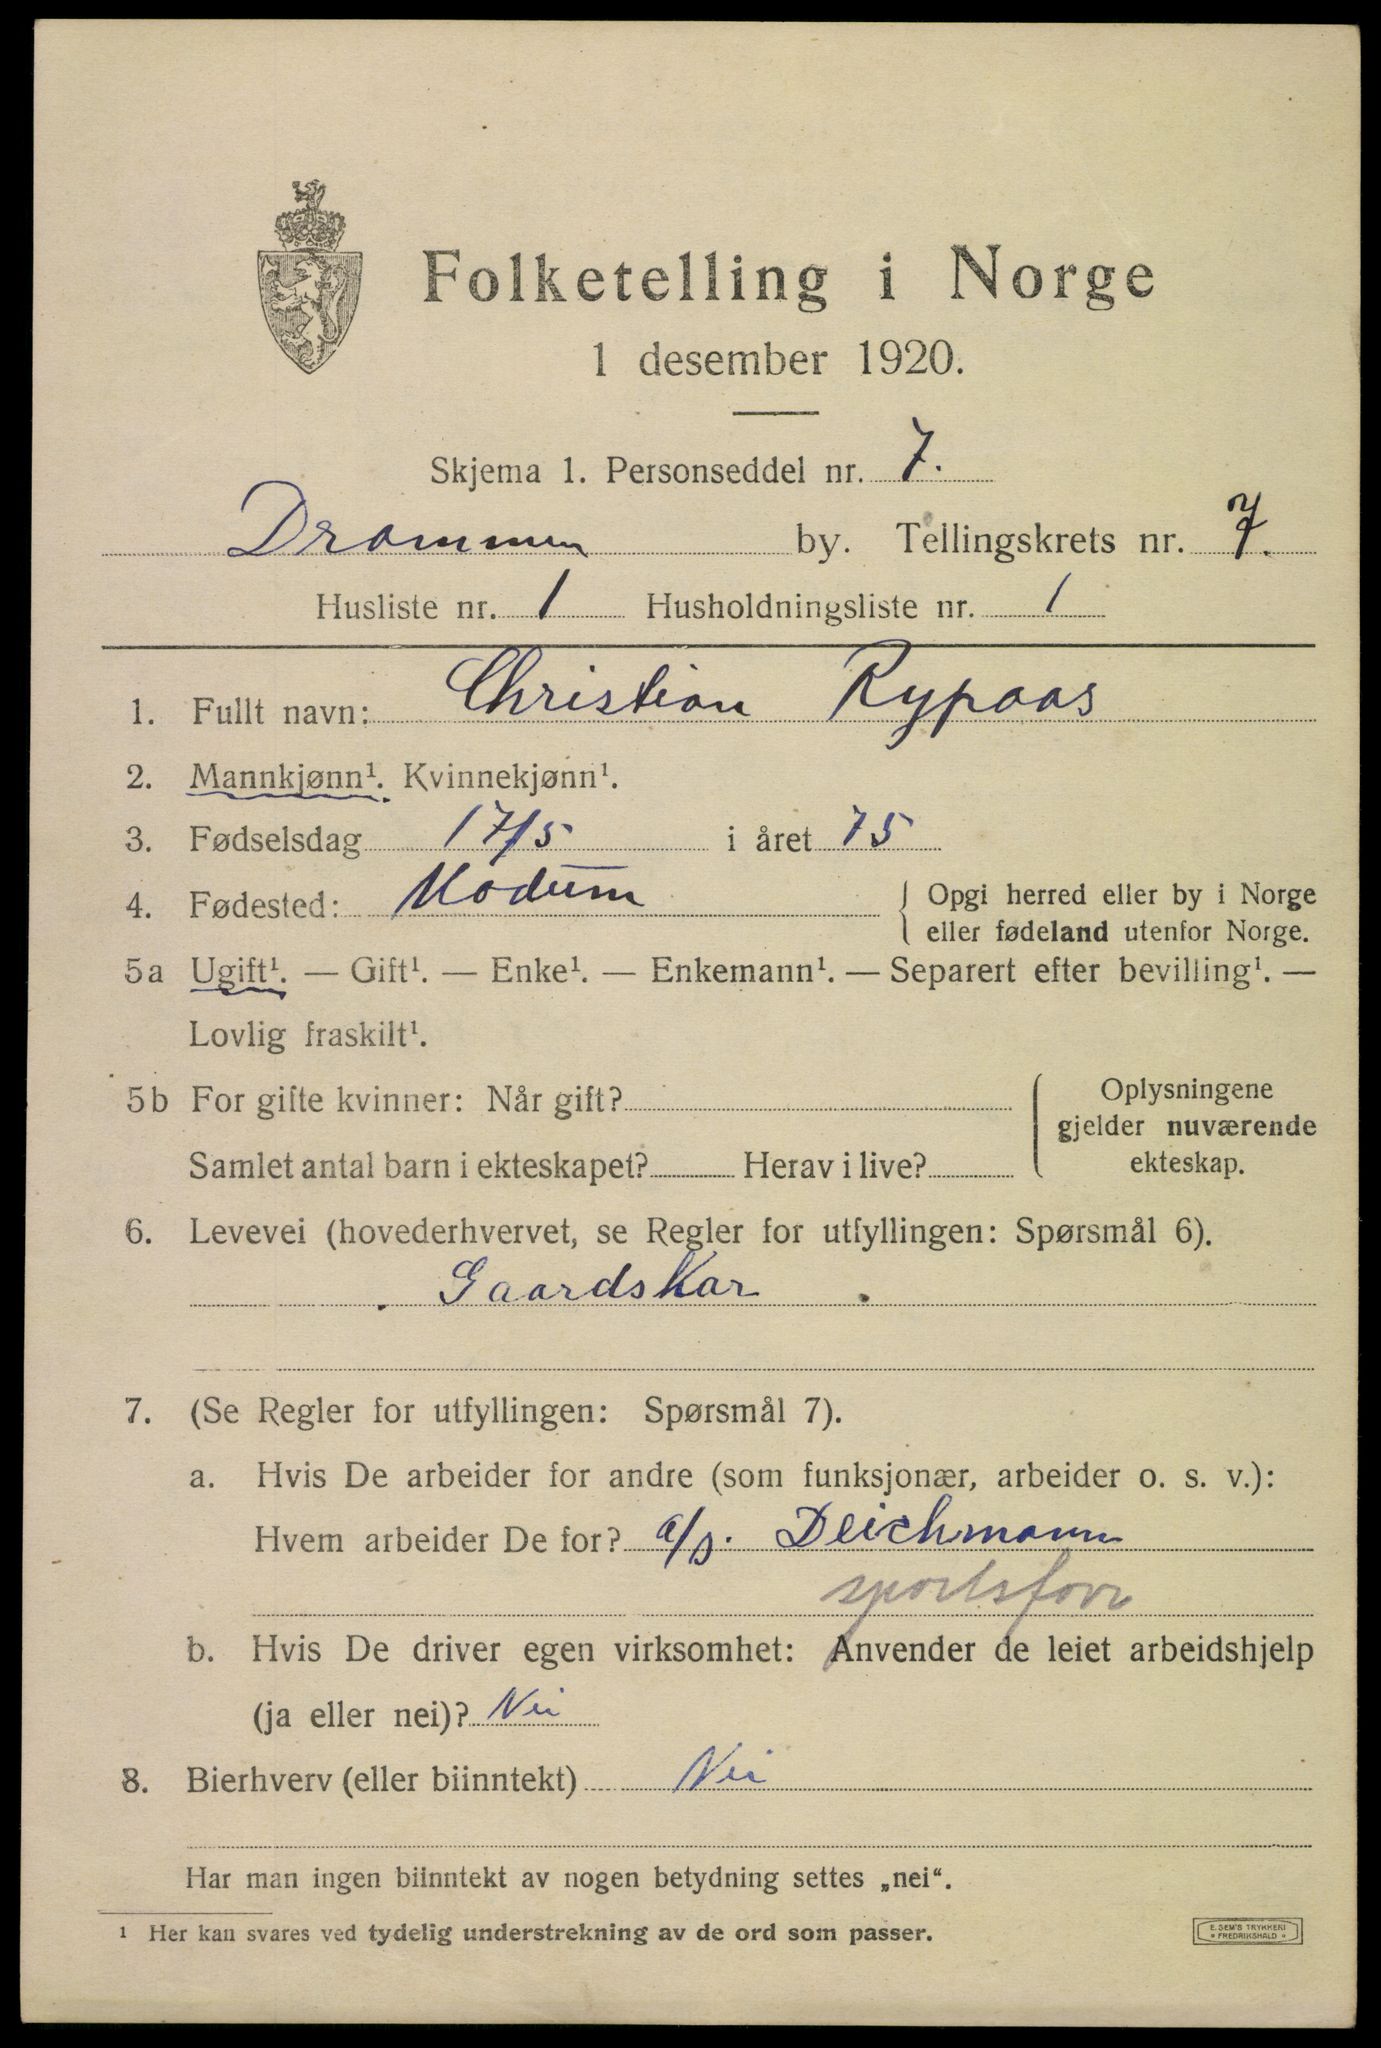 Folketelling i Norge
1 desember 1920.
Skjema 1. Personseddel nr. 7.
Drammen by. Tellingskrets nr. 7.
Husliste nr. 1 Husholdningsliste nr. 1
1. Fullt navn: Christian Rypaas
2. Mannkjønn¹. Kvinnekjønn¹.
3. Fødselsdag 17/5 i året 75
4. Fødested: Modum
Opgi herred eller by i Norge
eller fødeland utenfor Norge.
5a Ugift¹. — Gift¹. — Enke¹. — Enkemann¹. — Separert efter bevilling¹. —
Lovlig fraskilt¹.
5b For gifte kvinner: Når gift?
Samlet antal barn i ekteskapet? Herav i live?
Oplysningene
gjelder nuværende
ekteskap.
6. Levevei (hovederhvervet, se Regler for utfyllingen: Spørsmål 6).
Gaardskar
7. (Se Regler for utfyllingen: Spørsmål 7).
a. Hvis De arbeider for andre (som funksjonær, arbeider o. s. v.):
Hvem arbeider De for? a/s. Deichmann
sportsforr
b. Hvis De driver egen virksomhet: Anvender de leiet arbeidshjelp
(ja eller nei)? Nei
8. Bierhverv (eller biinntekt) Nei
Har man ingen biinntekt av nogen betydning settes „nei“.
¹ Her kan svares ved tydelig understrekning av de ord som passer.
E. SEM'S TRYKKERI
FREDRIKSHALD